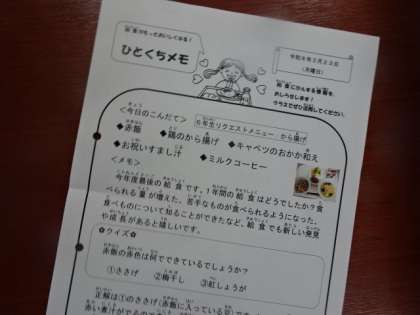 給食がもっとおいしくなる!
ひとくちメモ
(月曜日)
給食にかんする情報を、
おしらせします!
クラスでぜひ活用してください。
<今日のこんだて>
6年生リクエストメニュー から揚げ
◆赤飯 ◆鶏のから揚げ ◆キャベツのおかか和え
◆お祝いすまし汁 ◆ミルクコーヒー
<メモ>
今年度最後の給食です。1年間の給食はどうでしたか?食
べられる量が増えた、苦手なものが食べられるようになった、
食べものについて知ることができたなど、給食でも新しい発見
や成長があると嬉しいです。
✿クイズ✿
赤飯の赤色は何でできているでしょうか?
①ささげ ②梅干し ③紅しょうが
正解は①のささげ(赤飯に入っている豆)です。
赤い煮汁がでるので